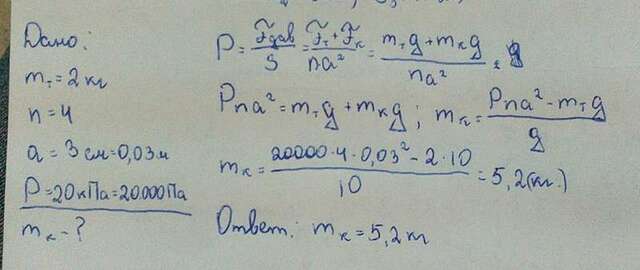 Дано:
mт = 2 кг
n = 4
a = 3 см = 0,03 м
P = 20 кПа = 20000 Па
mк - ?
P = Fдав / S = (Fт + Fк) / na² = (mтg + mкg) / na²
Pna² = mтg + mкg ; mк = (Pna² - mтg) / g
mк = (20000·4·0,03² - 2·10) / 10 = 5,2 (кг.)
Ответ: mк = 5,2 кг